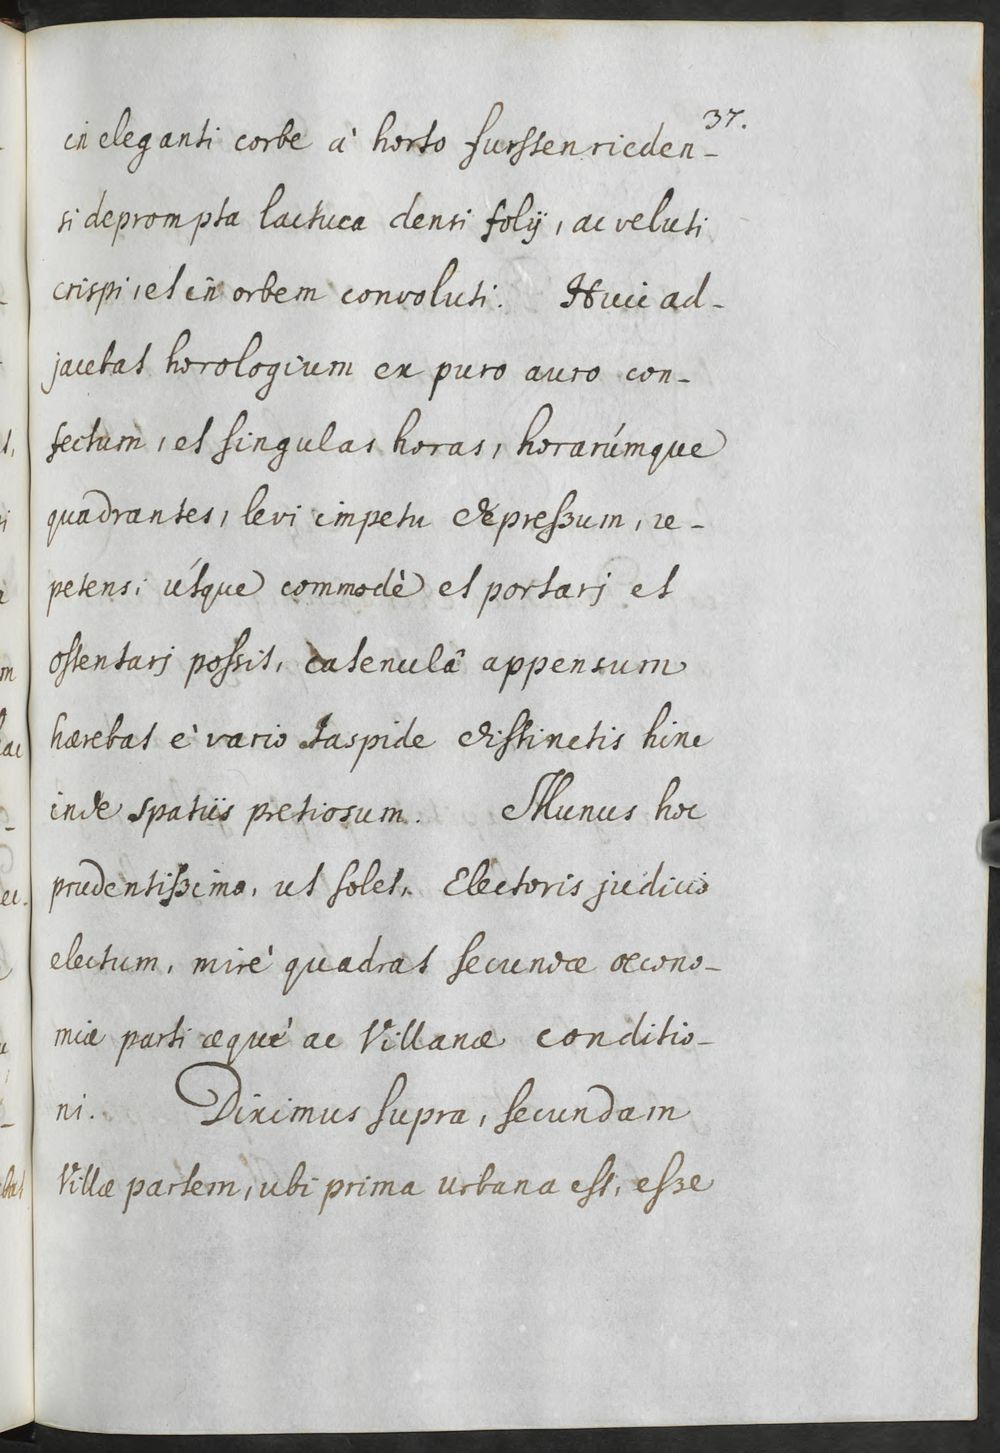 37.
in eleganti corbe à horto furstenrieden-
si deprompta lactuca densi folÿ, ac veluti
crispi, et in orbem convoluti. Huic ad-
jacebat horologium ex puro auro con-
fectum, et singulas horas, horarúmque
quadrantes, levi impetu depressum, re-
petens; útque commodè et portarj et
ostentarj possit, catenulâ appensum
hærebat è vario Iaspide distinctis hinc
inde spatiis pretiosum. Munus hoc
prudentissimo, ut solet, Electoris judicio
electum, mirè quadrat secundæ œcono-
miæ parti æquè ac Villanæ conditio-
ni. Diximus supra, secundam
Villæ partem, ubi prima urbana est, esse